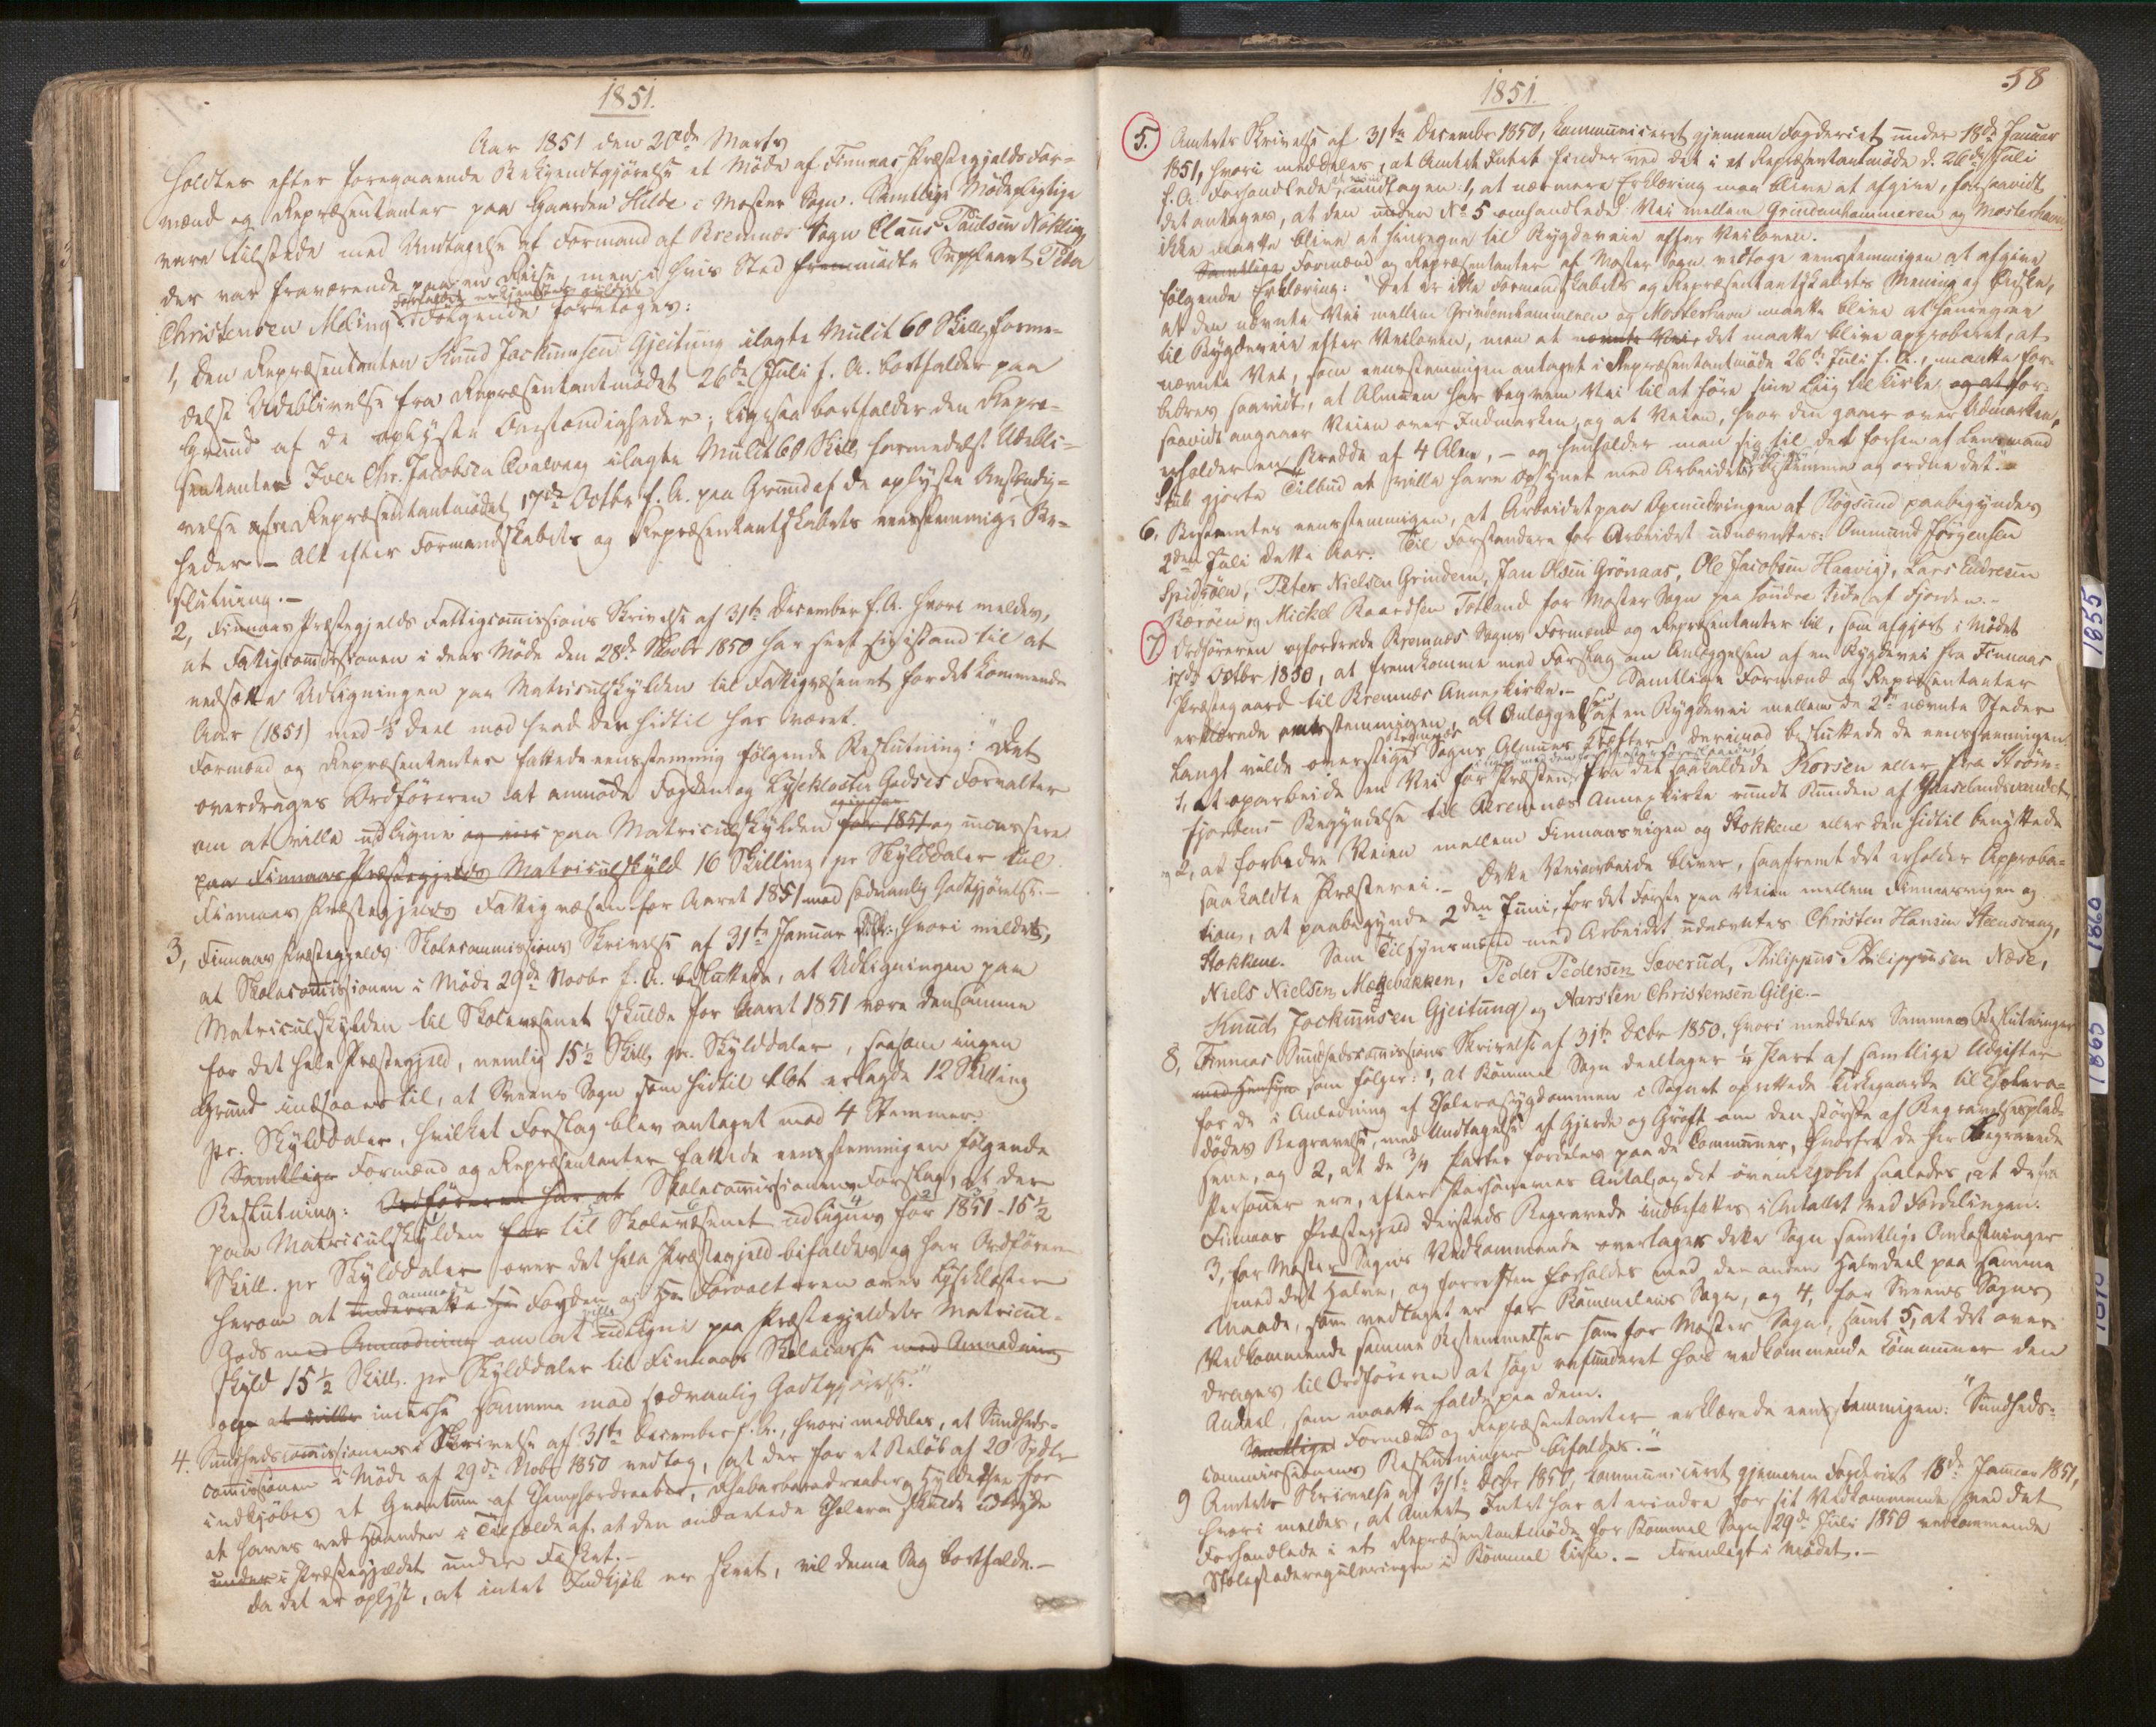 1851.
Aar 1851 den 20de Marts
holdtes efter foregaaende Bekjendtgjørelse et Møde af Finnaas Præstegjelds For-
mænd og Repræsentanter paa Gaarden Hilde i Moster Sogn. Samtlige Mødepligtige
vare tilstede med Undtagelse af Formand af Bremnæs Sogn Claus Paulsen Nøkling,
der var fraværende paa en Reise, men i hvis Sted fremmødte Suppleant Peter
Forfaldet erkjendtes gyldigt
Christensen Meling. Følgende foretoges:
1, Den Repræsentanten Knud Jockumsen Gjeitung ilagte Mulct 60 Skill, forme-
delst Udeblivelse fra Repræsentantmødet 26de Juli f. A. bortfalder paa
Grund af de oplyste Omstændigheder; ligesaa bortfalder den Repræ-
sentanten Iver Chr. Jacobsen Qvalvaag ilagte Mulct 60 Skill formedelst Udebli-
velse fra Repræsentantmødet 17de Octbr f. A. paa Grund af de oplyste Omstændig-
heder – Alt efter Formandskabets og Repræsentantskabets eenstemmige Be-
slutning. –
2, Finnaas Præstegjelds Fattigcommissions Skrivelse af 31te December f. A. hvori meldes,
at Fattigcommissionen i dens Møde den 28de Novbr 1850 har seet sig istand til at
nedsætte Udligningen paa Matriculskylden til Fattigvæsenet for det kommende
Aar (1851) med 1/3 Deel mod hvad den hidtil har været.
Formænd og Repræsentanter fattede eenstemmig følgende Beslutning: "Det
overdrages Ordføreren at anmode Fogden og Lysekloster Godses Forvalter
om at ville udligne og ind paa Matriculskylden for 1851 og incassere
paa Finnaas Præstegjelds Matriculskyld 16 Skilling pr Skylddaler til
Finnaas Præstegjelds Fattigvæsen for Aaret 1851 med sædvanlig Godtgjørelse. –
3, Finnaas Præstegjelds Skolecommissions Skrivelse af 31te Januar hvori meldes,
at Skolecommissionen i Møde 29de Novbr f. A. besluttede, at Udligningen paa
Matriculskylden til Skolevæsenet skulde for Aaret 1851 være den samme
for det hele Præstegjeld, nemlig 15½ Skill. pr. Skylddaler, saasom ingen
Grund indsaaes til, at Sveens Sogn som hidtil blot erlagde 12 Skilling
pr. Skylddaler, hvilket Forslag blev antaget med 4 Stemmer.
Samtlige Formænd og Repræsentanter fattede eenstemmigen følgende
Beslutning: Ordføreren har at Skolecommissionens Forslag, at der
paa Matriculskylden for til Skolevæsenet udlignes for 1851 – 15½
Skill. pr Skylddaler over det hele Præstegjeld bifaldes og har Ordføreren
anmode
herom at underrette Hr Fogden og Hr Forvalteren over Lysekloster
ville
Gods med Anmodning om at udligne paa Præstegjeldets Matricul-
skyld 15½ Skill. pr Skylddaler til Finnaas Skolecasse med Anmodning
og at ville incasse samme mod sædvanlig Godtgjørelse."
4. Sundhedscommissionens Skrivelse af 31te December f. A., hvori meddeles, at Sundheds-
commissionen i Møde af 29de Novbr 1850 vedtog, at der for et Beløb af 20 Spdlr
indkjøbes et Qvantum af Champhordraaber, Rhabarberdraaber, Hyldethee for
at haves ved Haanden i Tilfælde af at den ondartede Cholera skulde udbryde
under i Præstegjældet under Fisket. –
Da det er oplyst, at intet Indkjøb er skeet, vil denne Sag bortfalde. –
58
1851.
5. Amtets Skrivelse af 31te December 1850, communiceret gjennem Fogderiet under 18de Januar
1851, hvori meddeles, at Amtet Intet finder ved det i et Repræsentantmøde d. 26de Juli
f. A. Forhandlede undtagen: 1, at nærmere Erklæring maa blive at afgive, forsaavidt
det antages, at den under No 5 omhandlede Vei mellem Grindenhammeren og Mosterhavn
ikke maatte blive at henregne til Bygdeveie efter Veiloven.
Samtlige Formænd og Repræsentanter af Moster Sogn vedtoge eenstemmigen at afgive
følgende Erklæring: "Det er ikke Formandskabets og Repræsentantskabets Mening og Ønske,
at den nævnte Vei mellem Grindenhammeren og Mosterhavn maatte blive at henregne
til Bygdeveie efter Veiloven, men at nævnte Vei, det maatte blive approberet, at
nævnte Vei, som eenstemmigen antaget i Repræsentantmøde 26de Juli f. A., maatte for-
bedres saavidt, at Almuen har beqvem Vei til at føre sine Liig til Kirke og at for-
saavidt angaaer Veien over Indmarken, og at Veien, hvor den gaaer over Udmarken,
erholder en Bredde af 4 Alen, – og henholder man sig til det forhen af Lensmand
Stub gjorte Tilbud at ville have Opsynet med Arbeidet, bestemme og ordne det." –
6, Bestemtes eenstemmigen, at Arbeidet paa Opmudringen af Røgsund paabegyndes
2den Juli dette Aar. Til Forstandere for Arbeidet udnævntes: Ommund Jørgensen
Spidsøen, Peter Nielsen Grindem, Jan Olsen Grønaas, Ole Jacobsen Haavig, Lars Endresen
Bærøen og Mickel Baardsen Totland for Moster Sogn paa søndre Side af Fjorden. –
7 Ordføreren opfordrede Bremnæs Sogns Formænd og Repræsentanter til, som afgjort i Mødet
17de Octbr 1850, at fremkomme med Forslag om Anlæggelsen af en Bygdevei fra Finnaas
Præstegaard til Bremnæs Annexkirke. – Samtlige Formænd og Repræsentanter
erklærede eenstemmigen, at Anlæggelse af en Bygdevei mellem de 2de nævnte Steder
langt vilde overstige Sogns Almues Kræfter, derimod besluttede de eenstemmigen:
1, at oparbeide en Vei for Præsten fra det saakaldede Korsen eller fra Strøm-
fjordens Begyndelse til Bremnæs Annexkirke rundt Bunden af
og 2, at forbedre Veien mellem Finnaasvigen og Stokkene eller den hidtil benyttede
saakaldte Præstevei. – Dette Veiarbeide bliver, saafremt det erholder Approba-
tion, at paabegynde 2den Juni, for det Første paa Veien mellem Finnaasvigen og
Stokkene. Som Tilsynsmænd med Arbeidet udnævntes Christen Hansen Steensvaag,
Niels Nielsen Mælebakken, Peder Pedersen Sæverud, Philippus Philippusen Næse,
Knud Jockumsen Gjeitung og Aarsten Christensen Gilje. –
8, Finnaas Sundhedscommissions Skrivelse af 31te Decbr 1850, hvori meddeles Sammes Beslutninger
med Hensyn som følger: 1, at Bømmel Sogn deeltager ¼ Part af samtlige Udgifter
for de i Anledning af Cholerasygdommen i Sognet oprettede Kirkegaarde til Cholera-
dødes Begravelse, med Undtagelse af Gjerde og Grøft om den største af Begravelsesplad-
sene, og 2, at de ¾ Parter fordeles paa de Communer, hvorfra de her Begravede
Personer ere, efter Personernes Antal, og det ovenikjøbet saaledes, at de fra
Finnaas Præstegjeld dersteds Begravede indbefattes i Antallet ved Fordelingen.
3, for Moster Sogns Vedkommende overtager dette Sogn samtlige Omkostninger
med det Halve, og forresten forholdes med den anden Halvdeel paa samme
Maade, som vedtaget er for Bømmelens Sogn, og 4, for Sveens Sogns
Vedkommende samme Bestemmelser som for Moster Sogn, samt 5, at det over-
drages til Ordføreren at søge refunderet hos vedkommende Communer den
Andeel, som maatte falde paa dem.
Samtlige Formænd og Repræsentanter erklærede eenstemmigen: "Sundheds-
commissionens Beslutninger bifaldes." –
9 Amtets Skrivelse af 31te Decbr 1850, communiceret gjennem Fogderiet 18de Januar 1851,
hvori meldes, at Amtet Intet har at erindre for sit Vedkommende ved det
Forhandlede i et Repræsentantmøde for Bømmel Sogn 29de Juli 1850 vedkommende
Stolestaderegulering i Bømmel Kirke. – Fremlagt i Mødet. –
1855
1860
1865
1870